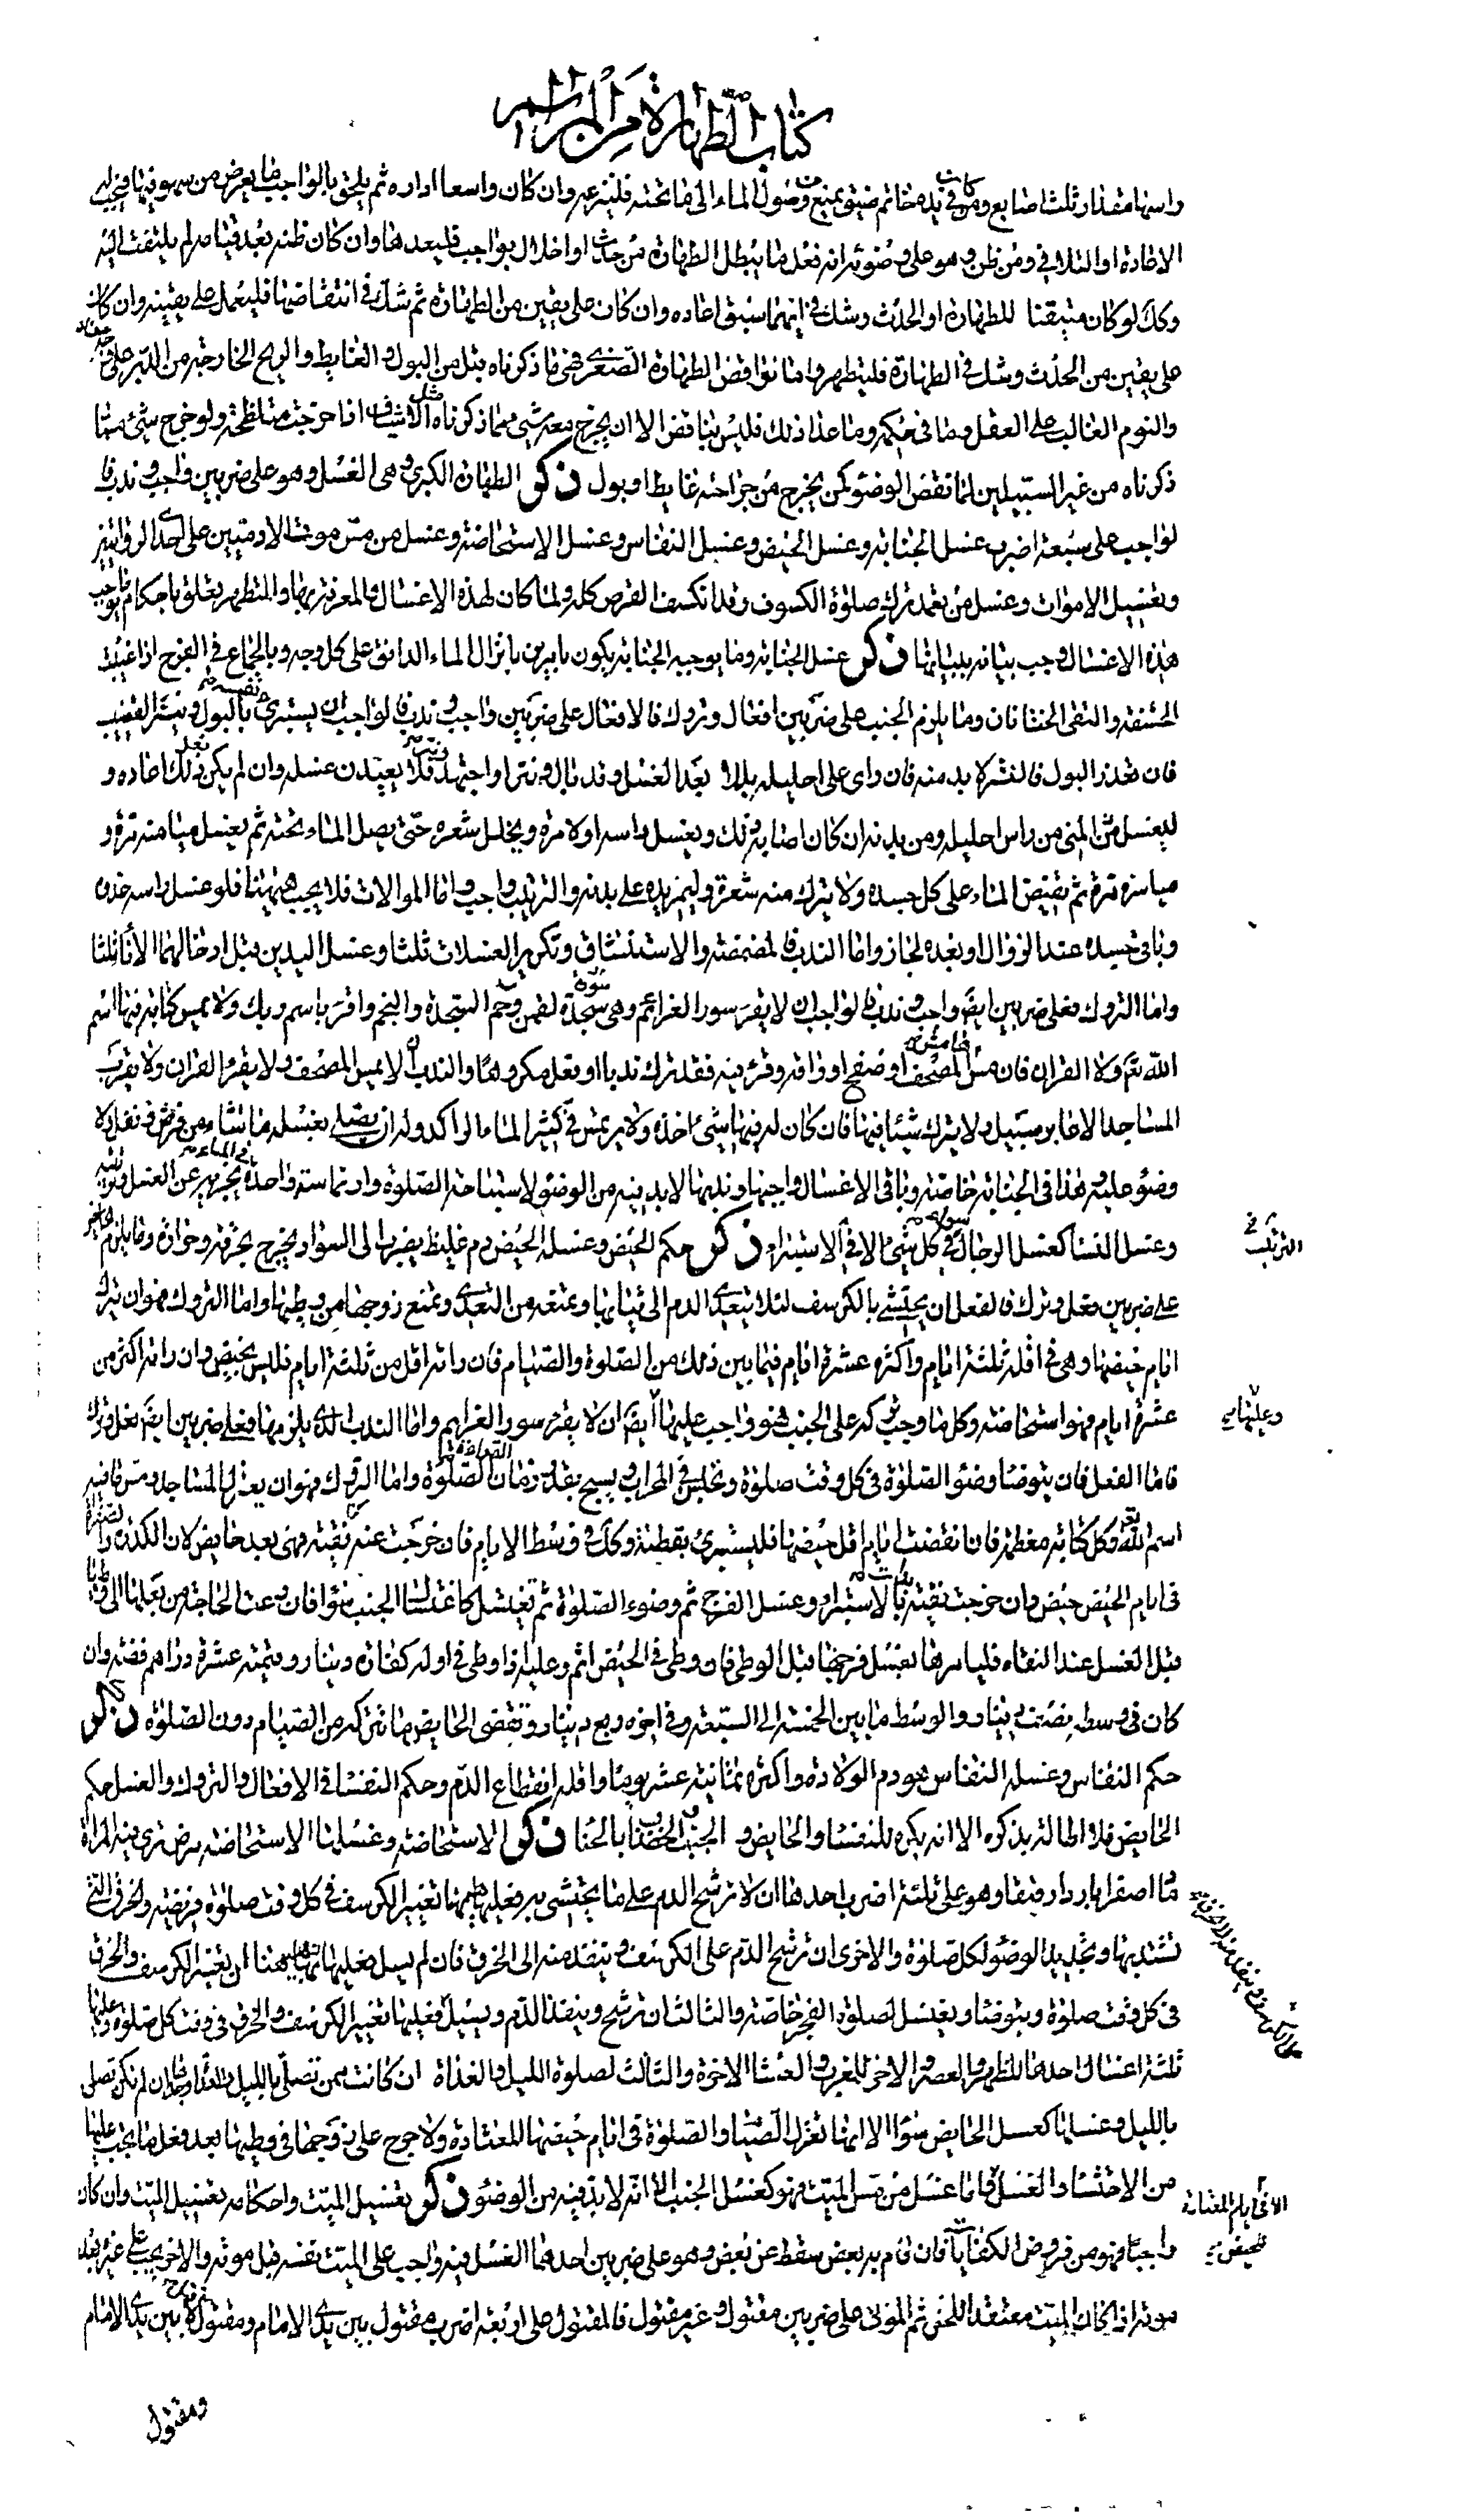 كتاب الطهارة من المراسم
واسها مقدار ثلث اصابع ومن كان في يده خاتم ضيق يمنع من وصول الماء الى ما تحته فلينزعه وان كان واسعا اداره ثم يلحق بالواجب ما يعرض من سهو فيها فيجب له
الاعادة او التلافي ومن ظن وهو على وضوئه انه فعل ما يبطل الطهارة من حدث او اخلال بواجب فليعدها وان كان ظنه بعد قيامه لم يلتفت اليه
وكك لو كان متيقنا للطهارة او الحدث وشك في ايهما سبق اعاده وان كان على يقين من الطهارة ثم شك في انتقاضها فليعمل على يقينه وان كان
على يقين من الحدث وشك في الطهارة فليتطهر واما نواقض الطهارة الصغرى فهي ما ذكرناه قبل من البول والغايط والريح الخارجة من الدبر على وجه معتاد
والنوم الغالب على العقل وما في حكمه وما عدا ذلك فليس بناقض الا ان يخرج معه شيء مما ذكرناه مثل الاشياف اذا خرجت متلطخة ولو خرج شيء مما
ذكرناه من غير السبيلين لما نقض الوضوء كمن يخرج من جراحته غايط او بول ذكر الطهارة الكبرى وهى الغسل وهو على ضربين واجب وندب فا
لواجب على سبعة اضرب غسل الجنابة وغسل الحيض وغسل النفاس وغسل الاستحاضة وغسل من مس موت الادميين على احدى الروايتين
وتغسيل الاموات وغسل من تعمد ترك صلوة الكسوف وقد انكسف القرص كله ولما كان لهذه الاغسال والمعرفة بها والتطهر تعلق باحكام ما يوجب
هذه الاغسال وجب بيانه ببيانها ذكر غسل الجنابة وما يوجبه الجنابة يكون بامرين بانزال الماء الدافق على كل وجه وبالجماع في الفرج اذا غيبت
الحشفة والتقى الختانان وما يلزم الجنب على ضربين افعال وتروك فالافعال على ضربين واجب وندب فالواجب ان يستبرئ نفسه بالبول ونتر القضيب
فان تعذر البول فالنتر لا بد منه فان راى على احليله بللا بعد الغسل وقد بال ونتر او اجتهد ونتر فلا يعيدن غسله وان لم يكن فعل ذلك اعاده و
ليغسل من المنى من راس احليله ومن بدنه ان كان اصابه ذلك ويغسل راسه اولا مرة ويخلل شعره حتى يصل الماء تحته ثم يغسل ميامنه مرة و
مياسره مرة ثم يفيض الماء على كل جسده ولا يترك منه شعرة وليمر يده على بدنه والترتيب واجب واما الموالات فلا يجب هيهنا فلو غسل راسه غدوة
وباقى جسده عند الزوال او بعده لجاز واما الندب فالمضمضة والاستنشاق وتكرير الغسلات ثلثا وغسل اليدين قبل ادخالهما الاناء ثلثا
واما التروك فعلى ضربين ايضا واجب وندب فالواجب ان لا يقرء سور العزائم وهى سجدة لقمن وحم السجدة والنجم واقرء باسم ربك ولا يمس كتابة فيها اسم
الله تع ولا القران فان مس هامش المصحف او صفح اوراقه وقرء فيه فقد ترك ندبا او فعل مكروها والندب ان لا يمس المصحف ولا يقرء القران ولا يقرب
المساجد الا عابر سبيل ولا يترك شيئا فيها فان كان له فيها شيء اخذه ولا يرتمس في كثير الماء الراكد وله ان يصلى بغسله ما شاء من فرض ونفل لا
وضوء عليه وهذا في الجنابة خاصة وباقى الاغسال واجبها وندبها لا بد فيه من الوضوء لاستباحة الصلوة وارتماسة واحدة في الماء يجزيه عن الغسل وترتيبه
وغسل النساء كغسل الرجال سواء في كل شيء الا في الاستبراء ذكر حكم الحيض وغسله الحيض دم غليظ يضرب الى السواد يخرج بحرقة وحرارة وما يلزم الحايض
الترتيب خ
على ضربين فعل وترك فالفعل ان يحتشي بالكرسف لئلا يتعدى الدم الى ثيابها ويمنعه من التعدى وتمنع زوجها من وطيها واما التروك فهو ان تترك
ايام حيضها وهى في اقله ثلثة ايام واكثره عشرة ايام فيما بين ذلك من الصلوة والصيام فان راته اقل من ثلثة ايام فليس بحيض وان راته اكثر من
عشرة ايام فهو استحاضة وكل ما وجب تركه على الجنب فهو واجب عليها ايضا ان لا يقرء سور العزايم واما الندب الذى يلزمها فعلى ضربين ايضا فعل وترك
وعليها
فاما الفعل فان يتوضا وضوء الصلوة في كل وقت صلوة وتجلس في المحراب ويسبح بقدر زمان الصلوة واما الترك فهو ان يعتزل المساجد ومس ما فيه
اسم الله تع وكل كتابة معظمة فان انقضت ايام اقل حيضها فليستبرئ بقطنة وكك في وسط الايام فان خرجت غير نقية فهى بعد حايض لان الكدرة والصفرة
في ايام الحيض حيض وان خرجت نقية بالاستبراء وغسل الفرج ثم وضوء الصلوة ثم تغتسل كاغتسال الجنب سواء فان دعت الحاجة من بعلها الى وطئها
قبل الغسل عند النقاء فليامرها بغسل فرجها قبل الوطى فان وطى في الحيض اثم وعليه اذا وطى في اوله كفارة دينار وقيمته عشرة دراهم فضة وان
كان في وسطه نصف دينار والوسط ما بين الخمسة الى السبعة وفي اخره ربع دينار وتقضى الحايض ما تتركه من الصيام دون الصلوة ذكر
حكم النفاس وغسله النفاس هو دم الولادة واكثره ثمانية عشر يوما واقله انقطاع الدم وحكم النفساء في الافعال والتروك والغسل حكم
الحايض فلا اطالة بذكره الا انه يكره للنفساء والحايض والجنب الخضاب بالحناء ذكر الاستحاضة وغسلها الاستحاضة مرض ترى فيه المراة
دما اصفر باردا رقيقا وهو على ثلثة اضرب احدها ان لا ترشح الدم على ما يحتشى به فعليها هيهنا تغيير الكرسف في كل وقت صلوة فريضة والخرق التى
تشتد بها وتجديد الوضوء لكل صلوة والاخرى ان ترشح الدم على الكرسف وينفذ منه الى الخرق فان لم يسل فعليها هيهنا ان تغير الكرسف والخرق
في كل وقت صلوة ويتوضا ويغتسل لصلوة الفجر خاصة والثالث ان ترشح وينفذ الدم ويسيل فعليها تغيير الكرسف والخرق في وقت كل صلوة وعليها
ثلثة اغسال احدها للظهر والعصر والاخر للمغرب والعشاء الاخرة والثالث لصلوة الليل والغداة ان كانت ممن تصلى بالليل ان لم تكن تصلى
بالليل وغسلها كغسل الحايض سواء الا انها لا تترك الصيام والصلوة في ايام حيضها المعتادة ولا حرج على زوجها في وطيها بعد فعل ما يجب عليها
من الاحتشاء والغسل فاما غسل من مس الميت فهو كغسل الجنب الا انه لا بد فيه من الوضوء ذكر تغسيل الميت واحكامه تغسيل الميت وان كان
الا في ايام المعتادة للحيض
واجبا فهو من فروض الكفايات فان قام به بعض سقط عن بعض وهو على ضربين احدهما الغسل فيه واجب على الميت نفسه قبل موته والاخر يجب على غيره بعد
موته اذا كان الميت معتقد للحق ثم الموتى على ضربين مقتول وغير مقتول فالمقتول على اربعة اضرب مقتول بين يدى الامام ومقتول لا بين يدى الامام
ومقتول